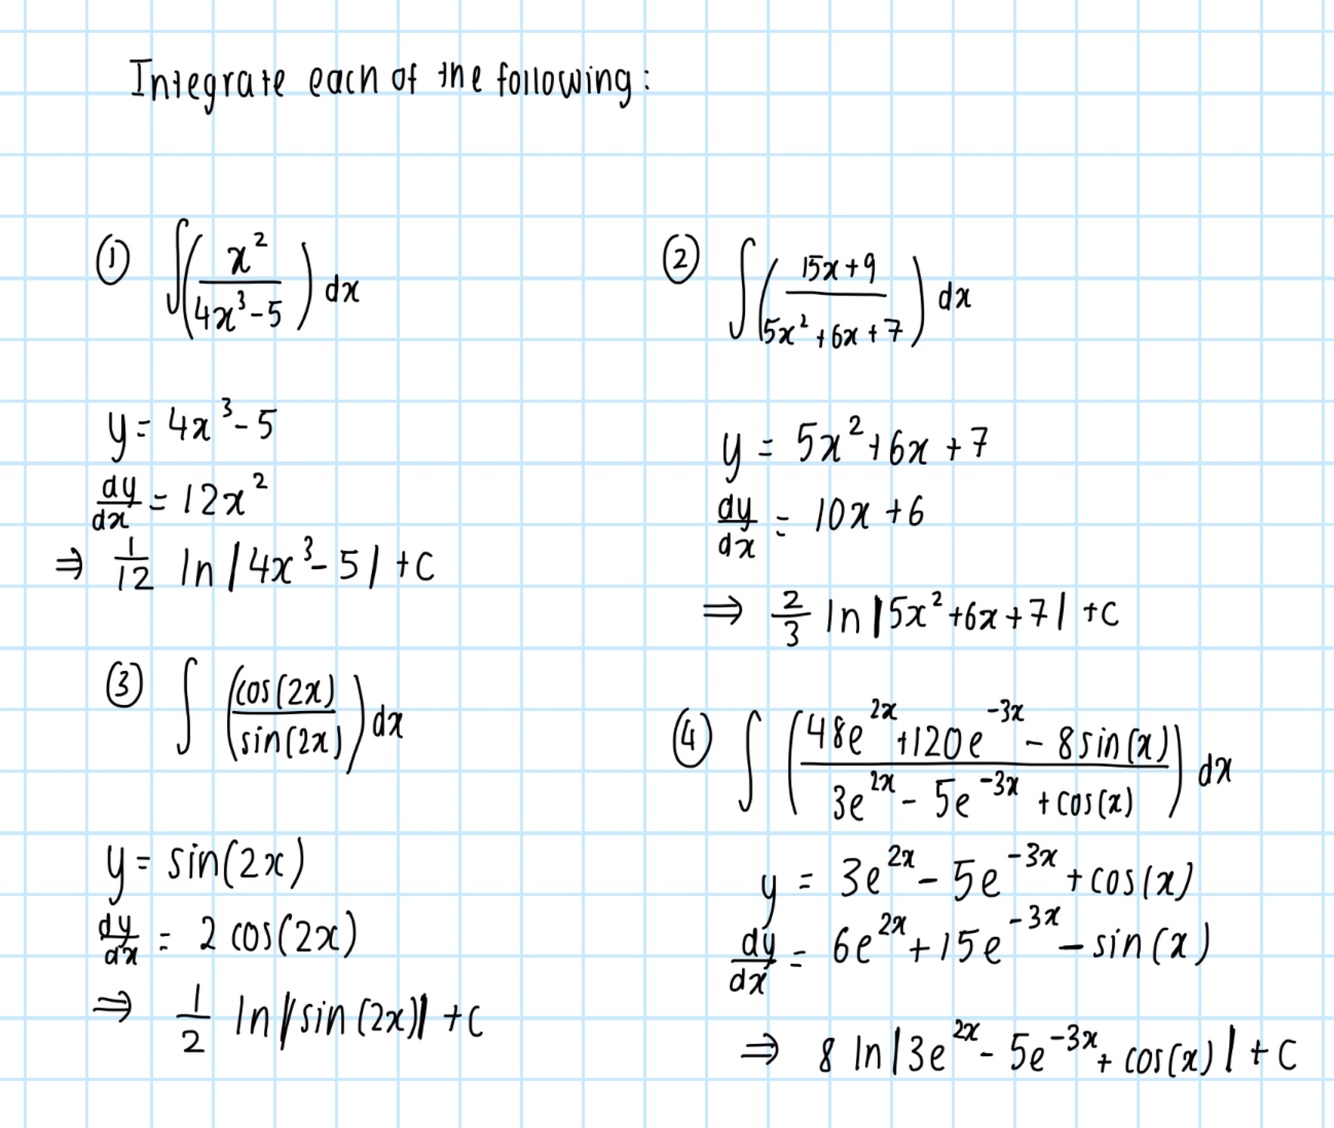 Integrate each of the following:
① ∫(x²/(4x³-5)) dx
y = 4x³-5
dy/dx = 12x²
⇒ 1/12 ln|4x³-5| +c
② ∫((15x+9)/(5x²+6x+7)) dx
y = 5x²+6x+7
dy/dx = 10x+6
⇒ 2/3 ln|5x²+6x+7| +c
③ ∫(cos(2x)/sin(2x)) dx
y = sin(2x)
dy/dx = 2 cos(2x)
⇒ 1/2 ln|sin(2x)| +c
④ ∫((48e^{2x}+120e^{-3x}-8sin(x))/(3e^{2x}-5e^{-3x}+cos(x))) dx
y = 3e^{2x}-5e^{-3x}+cos(x)
dy/dx = 6e^{2x}+15e^{-3x}-sin(x)
⇒ 8 ln|3e^{2x}-5e^{-3x}+cos(x)| +c